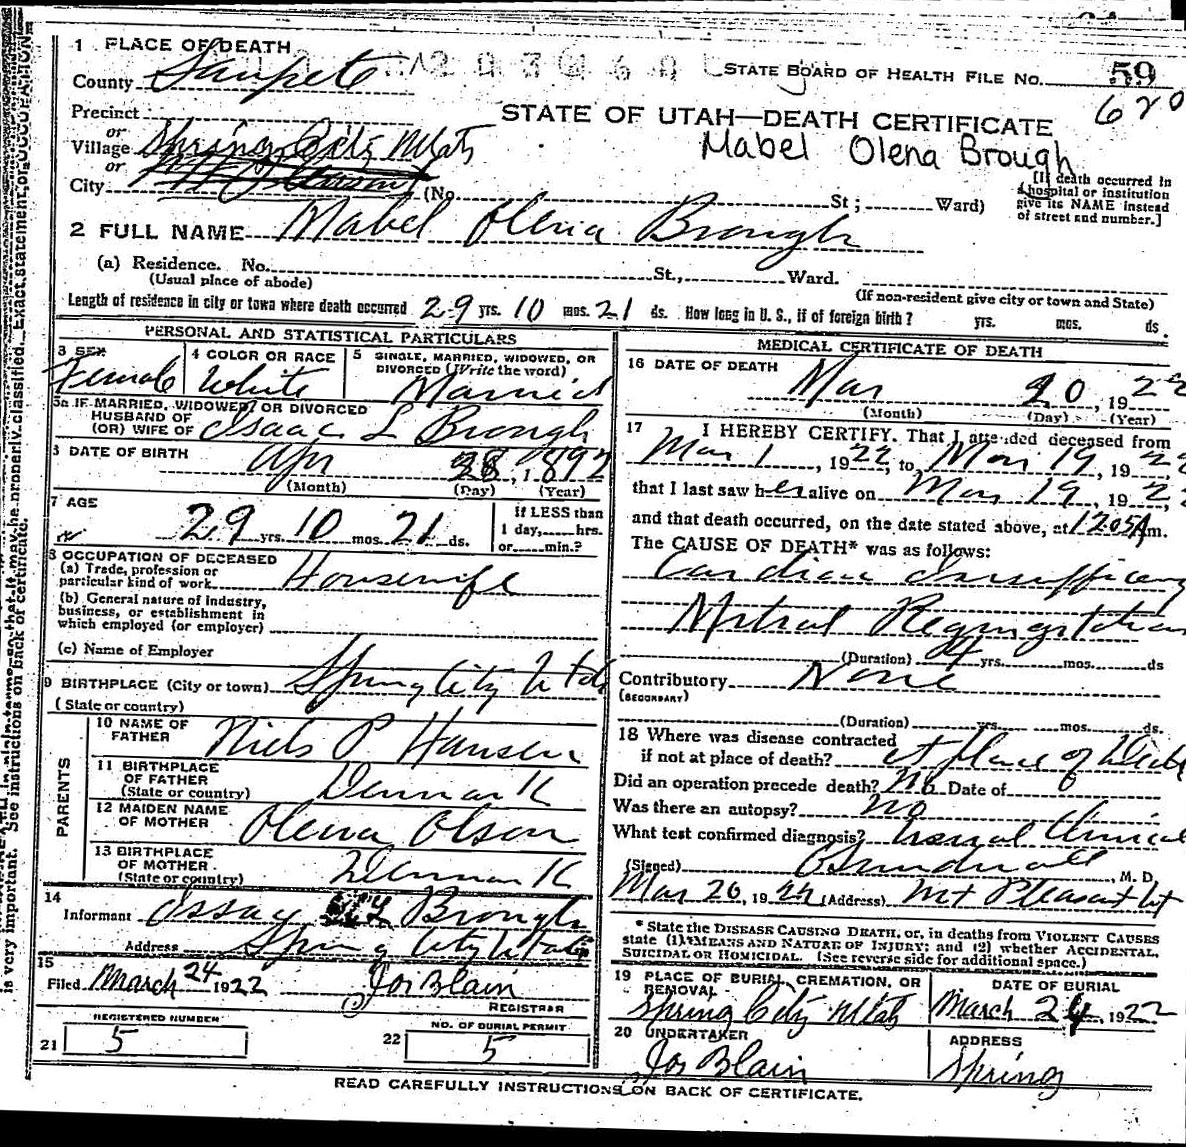 1 PLACE OF DEATH
County Sanpete
STATE BOARD OF HEALTH FILE NO. 59
620
Precinct
or
Village Spring City Utah
or
City Mt Pleasant (No. St; Ward)
STATE OF UTAH—DEATH CERTIFICATE
Mabel Olena Brough
[If death occurred in
a hospital or institution
give its NAME instead
of street and number.]
2 FULL NAME Mabel Olena Brough
(a) Residence. No. St., Ward.
(Usual place of abode)
(If non-resident give city or town and State)
Length of residence in city or town where death occurred 29 yrs. 10 mos. 21 ds. How long in U. S., if of foreign birth? yrs. mos. ds.
PERSONAL AND STATISTICAL PARTICULARS
3 SEX
Female
4 COLOR OR RACE
White
5 SINGLE, MARRIED, WIDOWED, OR
DIVORCED (Write the word)
Married
5a IF MARRIED, WIDOWED, OR DIVORCED
HUSBAND OF
(OR) WIFE OF Isaac L Brough
6 DATE OF BIRTH Apr 28, 1892
(Month) (Day) (Year)
7 AGE
29 yrs. 10 mos. 21 ds.
if LESS than
1 day, hrs.
or min.?
8 OCCUPATION OF DECEASED
(a) Trade, profession or
particular kind of work Housewife
(b) General nature of industry,
business, or establishment in
which employed (or employer)
(c) Name of Employer
9 BIRTHPLACE (City or town) Spring City Utah
(State or country)
PARENTS
10 NAME OF
FATHER Niels P Hansen
11 BIRTHPLACE
OF FATHER
(State or country) Denmark
12 MAIDEN NAME
OF MOTHER Olena Olson
13 BIRTHPLACE
OF MOTHER
(State or country) Denmark
14
Informant Issay Brough
Address Spring City Utah
15
Filed March 24 1922 Jos Blain
REGISTRAR
REGISTERED NUMBER
21 5
NO. OF BURIAL PERMIT
22 5
MEDICAL CERTIFICATE OF DEATH
16 DATE OF DEATH
Mar 20, 1922
(Month) (Day) (Year)
17 I HEREBY CERTIFY. That I attended deceased from
Mar 1, 1922, to Mar 19, 1922
that I last saw her alive on Mar 19, 1922
and that death occurred, on the date stated above, at 1205A m.
The CAUSE OF DEATH* was as follows:
Cardiac Insufficiency
Mitral Regurgitation
(Duration) 4 yrs. mos. ds
Contributory None
(SECONDARY)
(Duration) yrs. mos. ds.
18 Where was disease contracted
if not at place of death? at place of death
Did an operation precede death? No Date of
Was there an autopsy? no
What test confirmed diagnosis? usual Clinical
(Signed) , M. D.
Mar 20, 1922 (Address) Mt Pleasant Ut
* State the DISEASE CAUSING DEATH, or, in deaths from VIOLENT CAUSES
state (1) MEANS AND NATURE OF INJURY; and (2) whether ACCIDENTAL,
SUICIDAL OR HOMICIDAL. (See reverse side for additional space.)
19 PLACE OF BURIAL, CREMATION, OR
REMOVAL
Spring City Utah
DATE OF BURIAL
March 24, 1922
20 UNDERTAKER
Jos Blain
ADDRESS
Spring
READ CAREFULLY INSTRUCTIONS ON BACK OF CERTIFICATE.